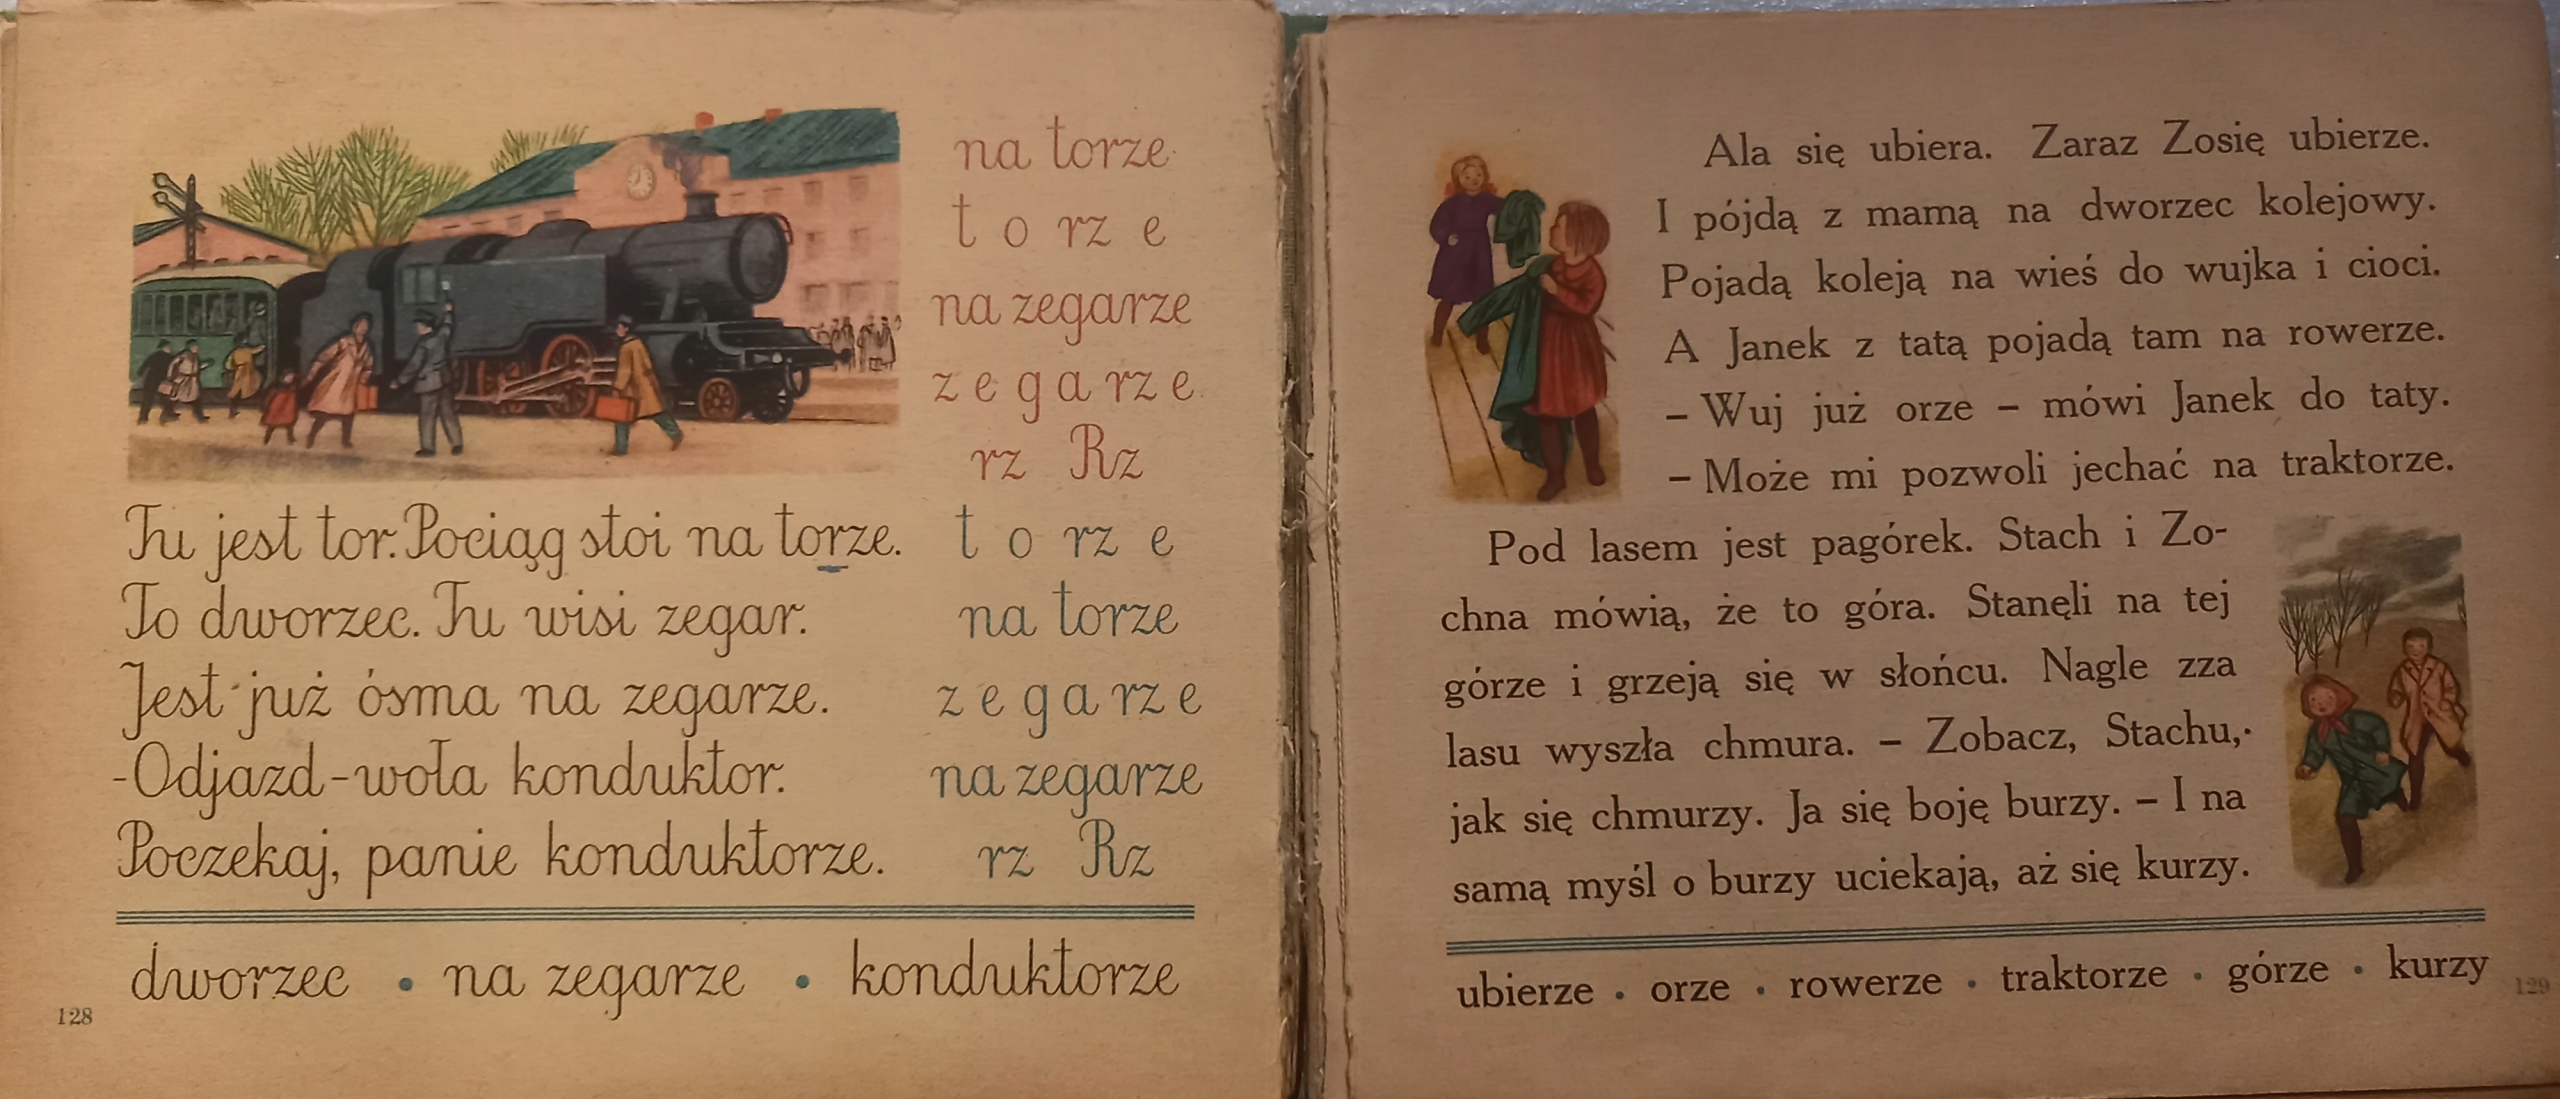 na torze
t o rz e
na zegarze
z e g a rz e
rz Rz
Tu jest tor. Pociąg stoi na torze.
To dworzec. Tu wisi zegar.
Jest już ósma na zegarze.
-Odjazd-woła konduktor.
Poczekaj, panie konduktorze.
t o rz e
na torze
z e g a rz e
na zegarze
rz Rz
dworzec • na zegarze • konduktorze
128
Ala się ubiera. Zaraz Zosię ubierze.
I pójdą z mamą na dworzec kolejowy.
Pojadą koleją na wieś do wujka i cioci.
A Janek z tatą pojadą tam na rowerze.
– Wuj już orze – mówi Janek do taty.
– Może mi pozwoli jechać na traktorze.
Pod lasem jest pagórek. Stach i Zo-
chna mówią, że to góra. Stanęli na tej
górze i grzeją się w słońcu. Nagle zza
lasu wyszła chmura. – Zobacz, Stachu,
jak się chmurzy. Ja się boję burzy. – I na
samą myśl o burzy uciekają, aż się kurzy.
ubierze • orze • rowerze • traktorze • górze • kurzy
129